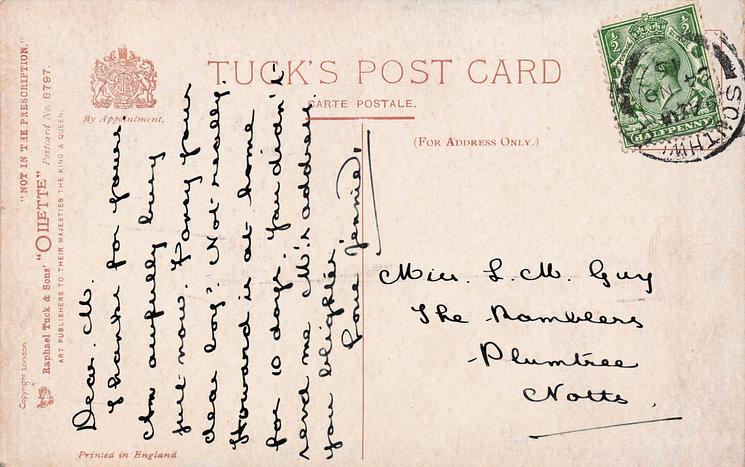 TUCK'S POST CARD
CARTE POSTALE.
(FOR ADDRESS ONLY.)
By Appointment.
"NOT IN THE PRESCRIPTION."
Raphael Tuck & Sons' "OILETTE" Postcard No. 8797.
ART PUBLISHERS TO THEIR MAJESTIES THE KING & QUEEN.
Copyright London
Printed in England
Dear M.
Thanks for yours.
Am awfully busy
just now. Fancy your
dear boy? Not really.
Howard is at home
for 10 days. You didn't
send me M's address
you blighter.
Love Jennie.
Miss. L. M. Guy
The Ramblers
Plumtree
Notts.
½ ½
HALFPENNY
SOUTHW